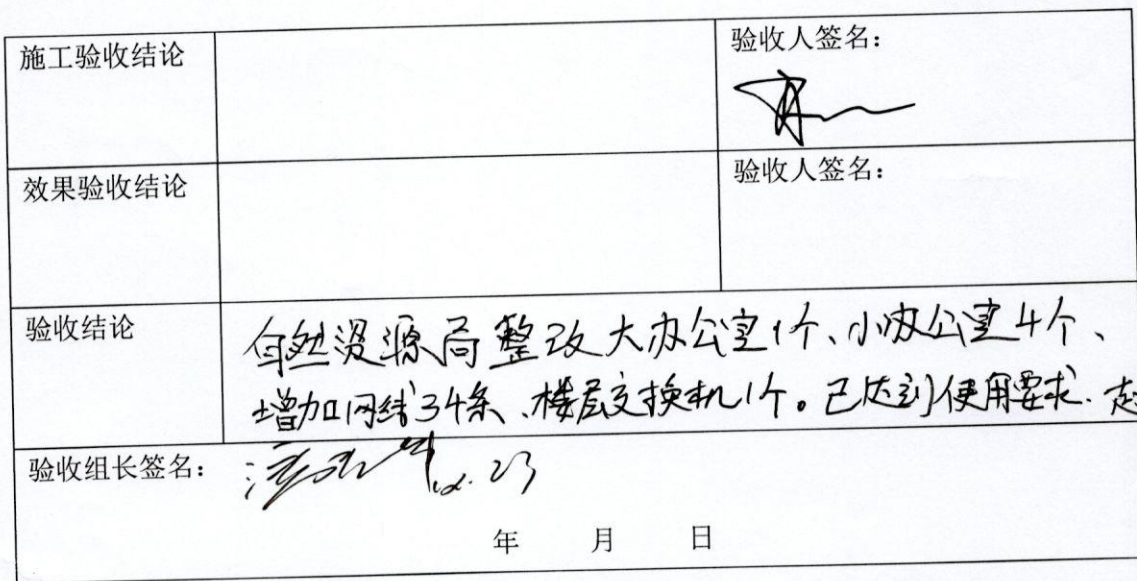 施工验收结论
验收人签名：
效果验收结论
验收人签名：
验收结论
自然资源局整改大办公室1个、小办公室4个、
增加网线34条、楼层交换机1个。已达到使用要求.
验收组长签名：
12.23
年 月 日